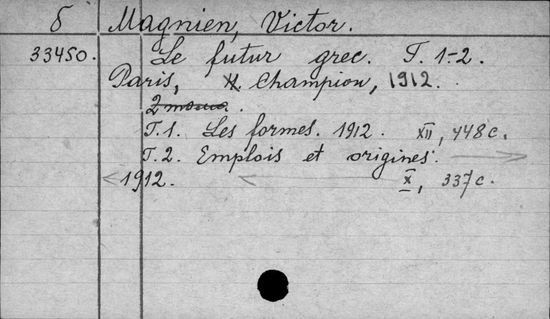 б Magnien, Victor.
33450. Le futur grec. T. 1-2.
Paris, H. Champion, 1912.
2 тома.
T. 1. Les formes. 1912. XII, 448 c.
T. 2. Emplois et origines.
1912. X, 337 c.